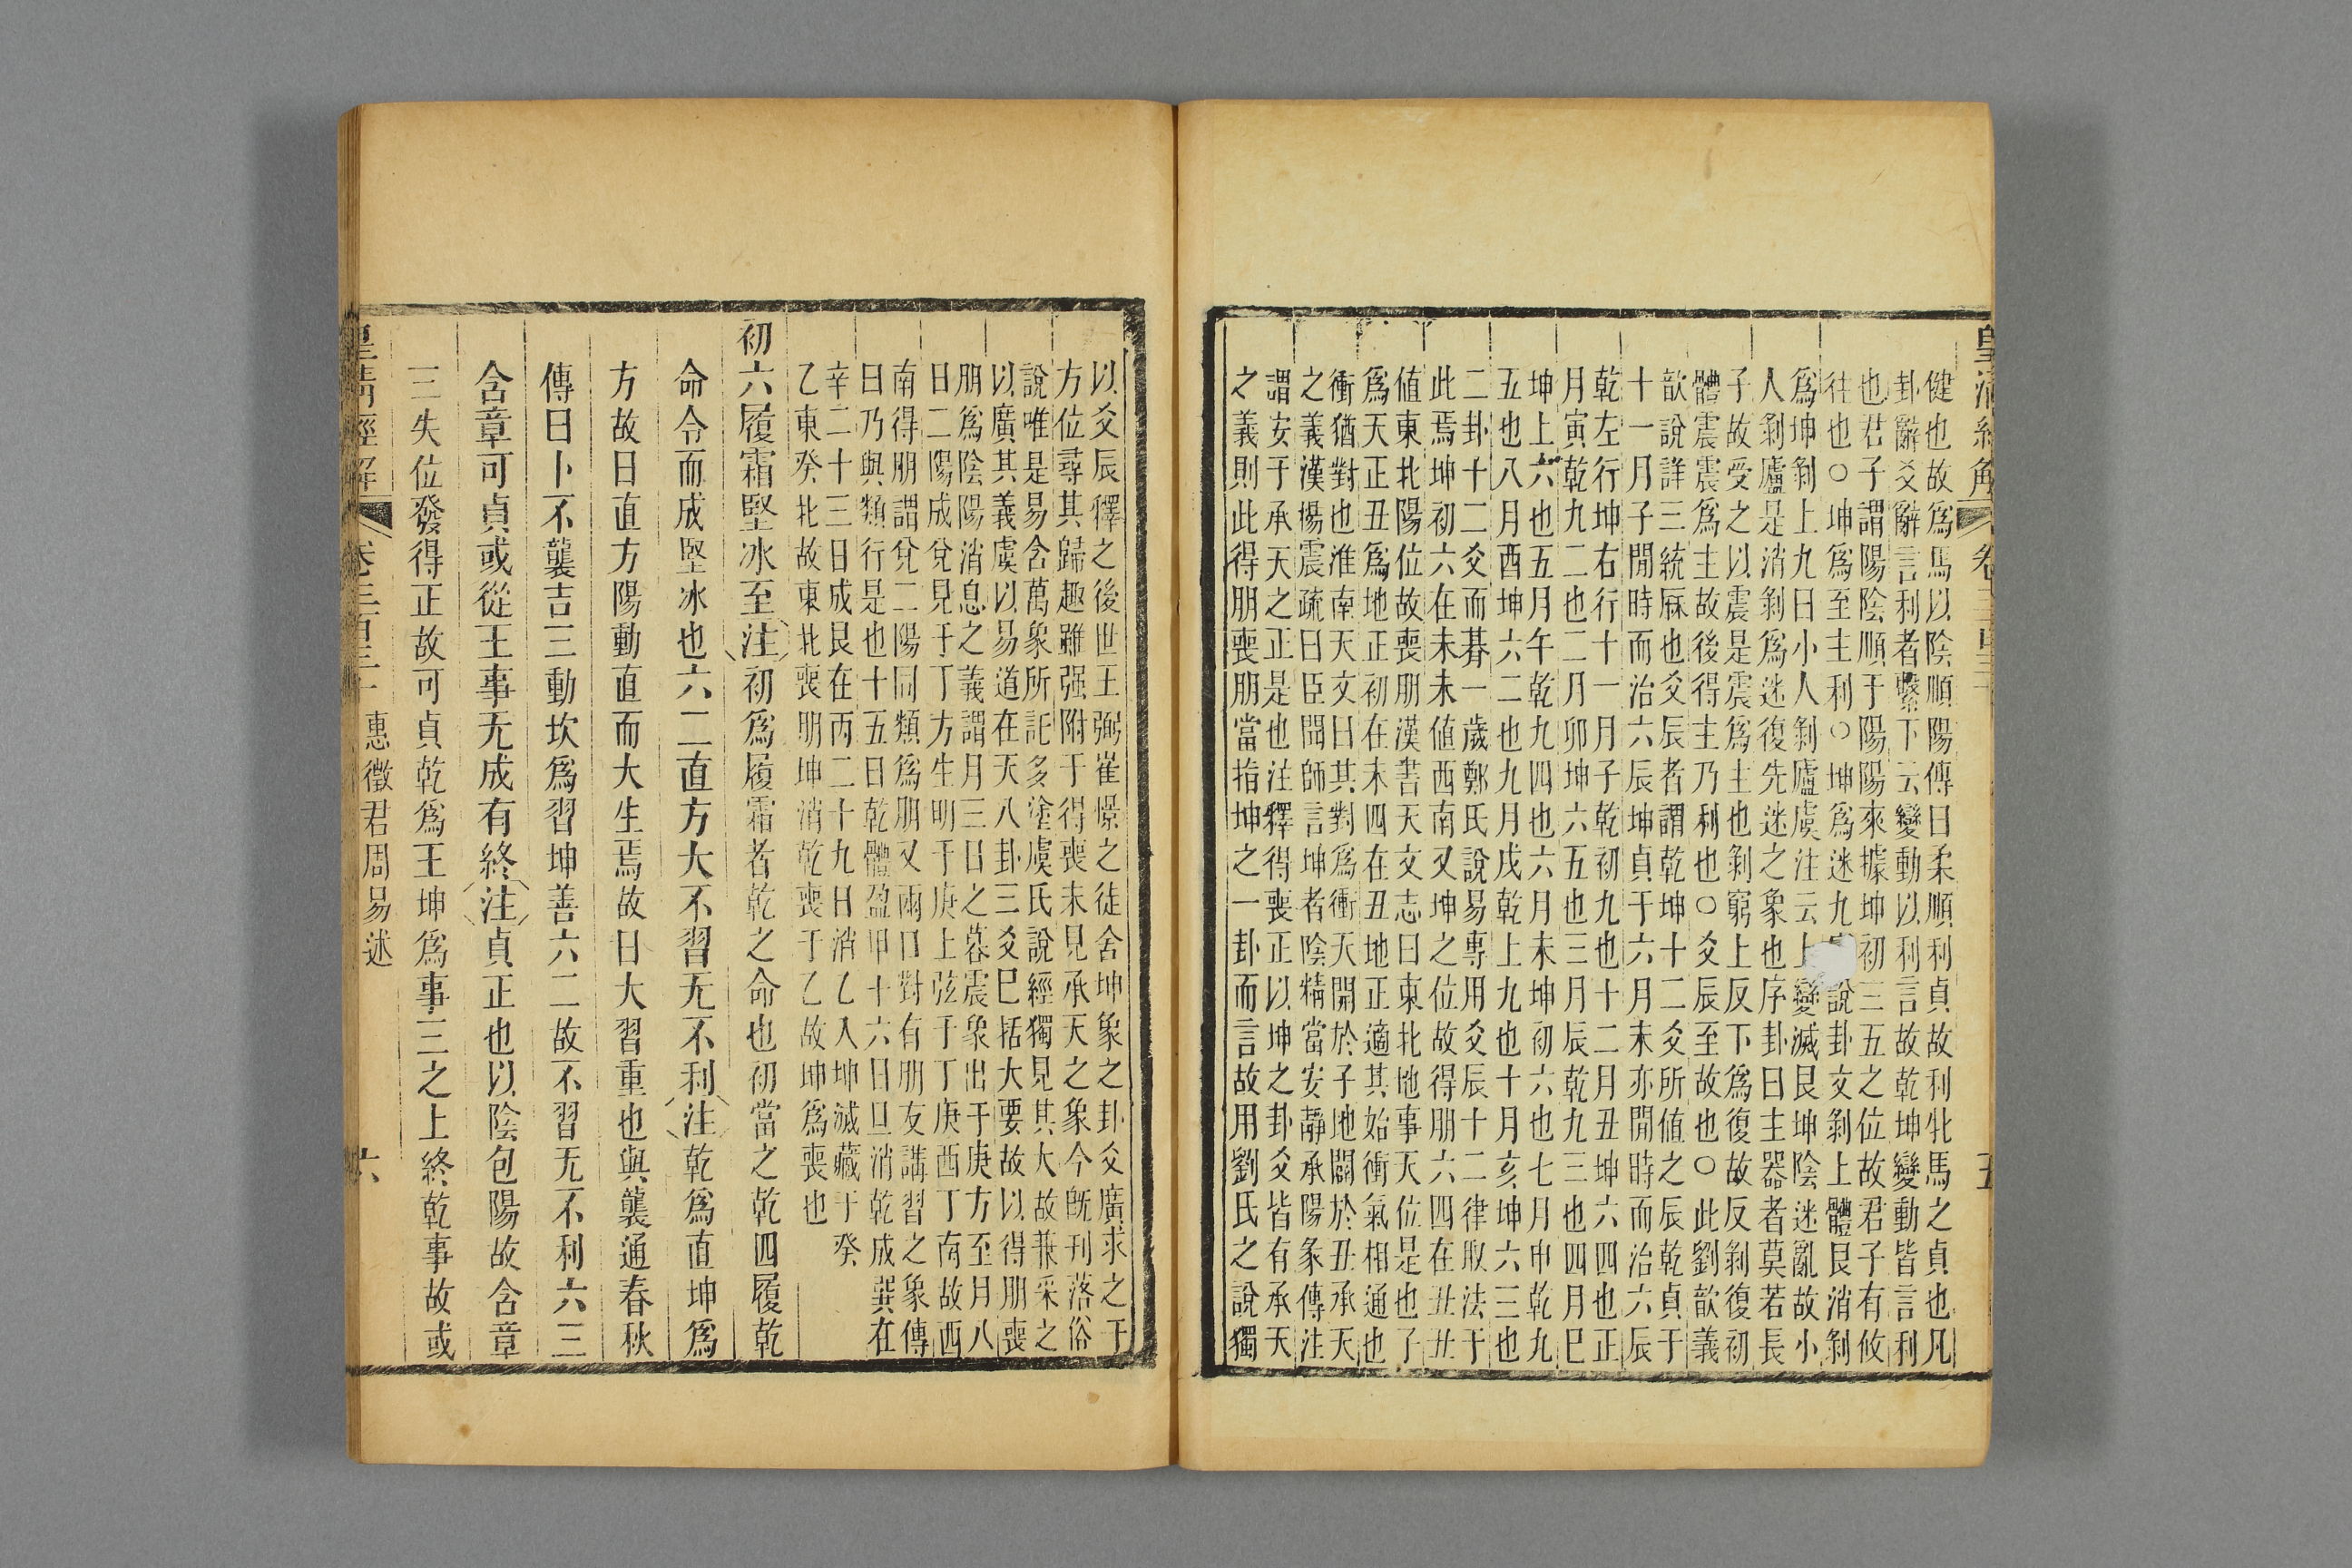 皇清經解
卷三百三十
五
健也故爲馬以陰順陽傳曰柔順利貞故利牝馬之貞也凡
卦辭爻辭言利者繫下云變動以利言故乾坤變動皆言利
也君子謂陽陰順于陽陽來據坤初三五之位故君子有攸
往也○坤爲至主利○坤爲迷九說卦文剝上體艮消剝
爲坤剝上九曰小人剝廬虞注云上變滅艮坤陰迷亂故小
人剝廬是消剝爲迷復先迷之象也序卦曰主器者莫若長
子故受之以震是震爲主也剝窮上反下爲復故反剝復初
體震震爲主故後得主乃利也○爻辰至故也○此劉歆義
歆說詳三統厤也爻辰者謂乾坤十二爻所値之辰乾貞于
十一月子閒時而治六辰坤貞于六月未亦閒時而治六辰
乾左行坤右行十一月子乾初九也十二月丑坤六四也正
月寅乾九二也二月卯坤六五也三月辰乾九三也四月巳
坤上六也五月午乾九四也六月未坤初六也七月申乾九
五也八月酉坤六二也九月戌乾上九也十月亥坤六三也
二卦十二爻而朞一歲鄭氏說易專用爻辰十二律取法于
此焉坤初六在未未値西南又坤之位故得朋六四在丑丑
値東北陽位故喪朋漢書天文志曰東北地事天位是也了
爲天正丑爲地正初在未四在丑地正適其始衝氣相通也
衝猶對也淮南天文曰其對爲衝天開於子地闢於丑承天
之義漢楊震疏曰臣聞師言坤者陰精當安靜承陽象傳注
謂安于承天之正是也注釋得喪正以坤之卦爻皆有承天
之義則此得朋喪朋當指坤之一卦而言故用劉氏之說獨
以爻辰釋之後世王弼崔憬之徒舍坤象之卦爻廣求之于
方位尋其歸趣雖强附于得喪未見承天之象今旣刊落俗
說唯是易含萬象所託多塗虞氏說經獨見其大故兼采之
以廣其義虞以易道在天八卦三爻巳括大要故以得朋喪
朋爲陰陽消息之義謂月三日之暮震象出于庚方至月八
日二陽成兌見于丁方生明于庚上弦于丁庚西丁南故西
南得朋謂兌二陽同類爲朋又兩口對有朋友講習之象傳
曰乃與類行是也十五日乾體盈甲十六日旦消乾成巽在
辛二十三日成艮在丙二十九日消乙入坤滅藏于癸
乙東癸北故東北喪朋坤消乾喪于乙故坤爲喪也
初六履霜堅冰至注初爲履霜者乾之命也初當之乾四履乾
命令而成堅冰也六二直方大不習无不利注乾爲直坤爲
方故曰直方陽動直而大生焉故曰大習重也與襲通春秋
傳曰卜不襲吉三動坎爲習坤善六二故不習无不利六三
含章可貞或從王事无成有終注貞正也以陰包陽故含章
三失位發得正故可貞乾爲王坤爲事三之上終乾事故或
皇清經解
卷三百三十
惠徵君周易述
六